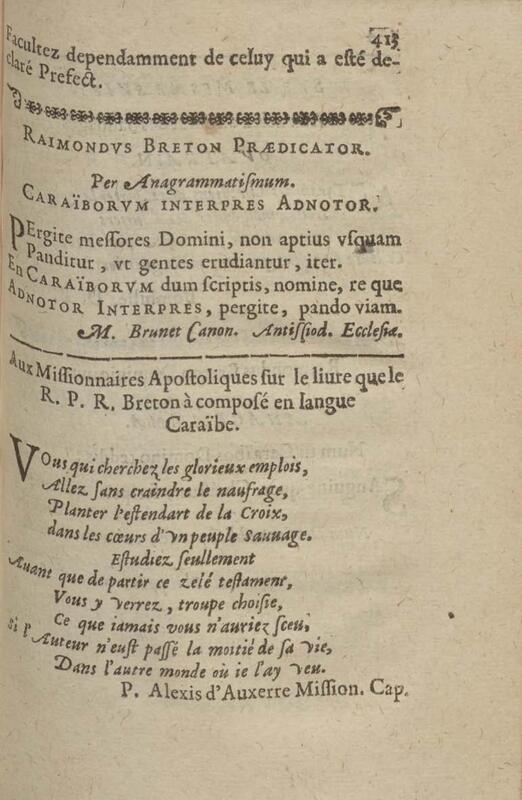 415
Facultez dependamment de celuy qui a esté de-
claré Prefect.
RAIMONDVS BRETON PRÆDICATOR.
Per Anagrammatiſmum.
CARAÏBORVM INTERPRES ADNOTOR.
PErgite meſſores Domini, non aptius vſquam
Panditur, vt gentes erudiantur, iter.
En CARAÏBORVM dum ſcriptis, nomine, re que
ADNOTOR INTERPRES, pergite, pando viam.
M. Brunet Canon. Antiſſiod. Eccleſiæ.
Aux Miſſionnaires Apoſtoliques ſur le liure que le
R. P. R. Breton à compoſé en langue
Caraïbe.
VOus qui cherchez les glorieux emplois,
Allez ſans craindre le naufrage,
Planter l'eſtendart de la Croix,
dans les cœurs d'vn peuple Sauuage.
Eſtudiez ſeullement
Auant que de partir ce zelé teſtament,
Vous y verrez, troupe choiſie,
Ce que iamais vous n'auriez ſceu,
Si l'Auteur n'euſt paſſé la moitié de ſa vie,
Dans l'autre monde où ie l'ay veu.
P. Alexis d'Auxerre Miſſion. Cap.